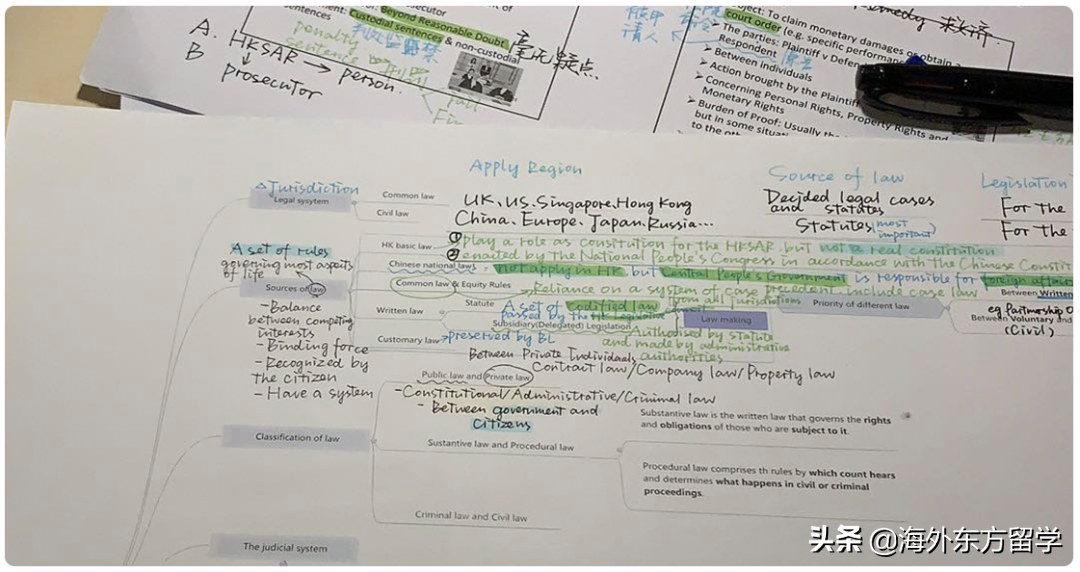 Beyond Reasonable Doubt
Custodial sentences & non-custodial
毫无疑点
penalty
sentence
A. HKSAR → person.
B prosecutor
To claim monetary damages or obtain a
court order (e.g. specific performance
救济
The parties: Plaintiff v Defen
Respondent
Between individuals
Action brought by the Plaintiff
Concerning Personal Rights, Property Rights and
Monetary Rights
Burden of Proof: Usually the
but in some situa
to the oth
Apply Region
Source of law
Legislation
Jurisdiction
Legal sysytem
Common law
UK、US、Singapore、Hong Kong
Decided legal cases
and statates
For the
Civil law
China、Europe、Japan、Russia...
Statutes (most
important)
For the
A set of rules
governing most aspects
of life
HK basic law
① play a role as consitution for the HKSAR. but not a real constitution
② enacted by the National People's Congress in accordance with the Chinese Constit
Chinese national laws
not apply in HK, but Central People's Government is responsible for foreign affairs
Sources of law
Common law & Equity Rules
Reliance on a system of case precedent include case law
Between Written
Statute
A set of codified law from all jurisdictions
Priority of different law
Written law
passed by the HK Legislative
Law making
eg. Partnership O
Between Voluntary and
(Civil)
Subsidiary(Delegated) Legislation
Authorised by statute
and made by administrative
authorities
Customary law
preserved by BL
- Balance
between competing
interests
- Binding force
- Recognized by
the citizen
- Have a system
Between Private Individuals
Contract law/Company law/Property law
Public law and Private law
- Constitutional/Administrative/Criminal law
- Between government and
citizens
Classification of law
Sustantive law and Procedural law
Substantive law is the written law that governs the rights
and obligations of those who are subject to it.
Procedural law comprises th rules by which count hears
and determines what happens in civil or criminal
proceedings.
Criminal law and Civil law
The judicial system
头条 @海外东方留学